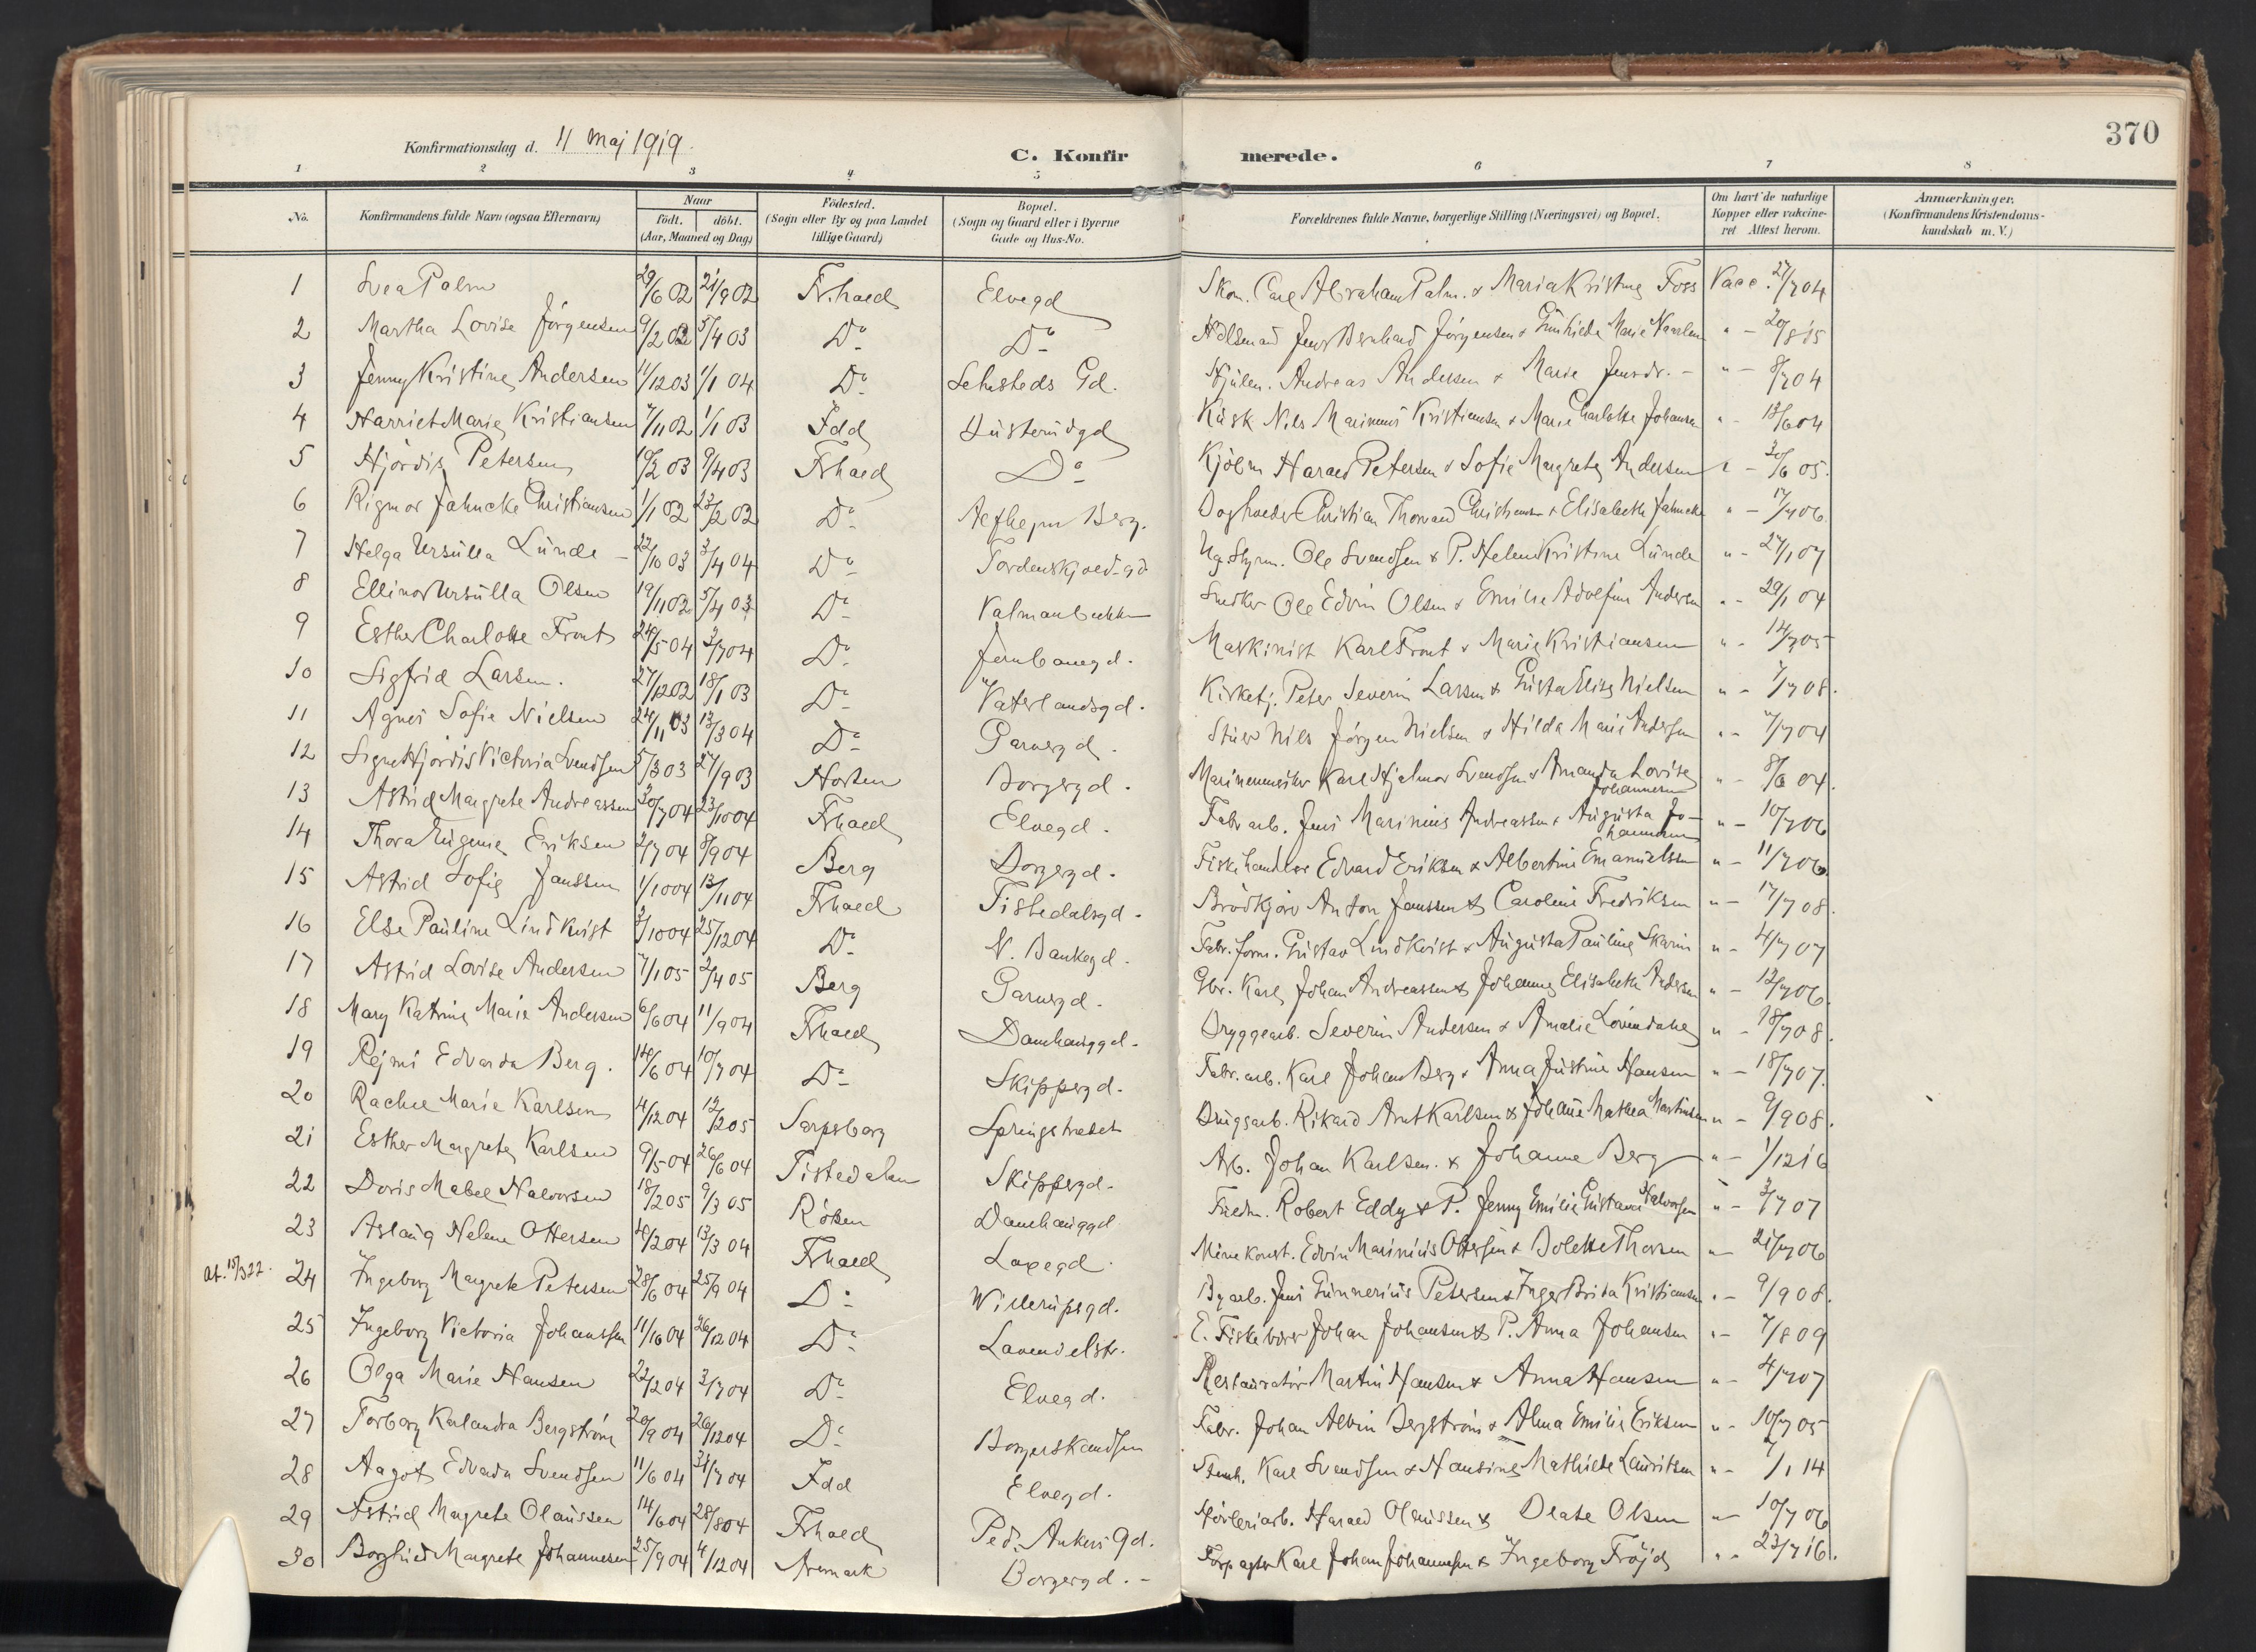 370
Konfirmationsdag d. 11 Maj 1919.
C. Konfirmerede.
1 2 3 4 5 6 7 8
No. Konfirmandens fulde Navn (ogsaa Efternavn) Naar født. døbt. (Aar, Maaned og Dag) Fødested. (Sogn eller By og paa Landet tillige Gaard) Bopæl. (Sogn og Gaard eller i Byerne Gade og Hus-No. Forældrenes fulde Navne, borgerlige Stilling (Næringsvei) og Bopæl. Om havt de naturlige Kopper eller vakcineret Attest herom. Anmærkninger. (Konfirmandens Kristendomskundskab m. V.)
1 Svea Palm 29/6 02 21/9 02 Fr.hald Elvegd Skom. Carl Abraham Palm & Maria Kristine Foss Vacc. 27/7 04
2 Martha Lovise Jørgensen 9/2 02 5/4 03 Do Do Jens Bernhard Jørgensen & Marie " - 20/8 15
3 Jenny Kristine Andersen 11/12 03 1/1 04 Do Gd. Andreas Andersen & Marie Jensdr. - " - 8/7 04
4 Harriet Marie Kristiansen 7/11 02 1/1 03 Idd Nils Marinius Kristiansen & Marie Charlotte Johansen " - 13/6 04
5 Hjørdis Petersen 10/2 03 9/4 03 Frhald Do Harald Petersen & Sofie Margrete Andersen " - 30/6 05.
6 Rigmor Jahncke Christiansen 1/1 02 23/2 02 Do Berg. Christian Thorvald Christiansen & Elisabeth Jahncke " - 17/7 06.
7 Helga Ursulla Lunde - 22/10 03 3/4 04 Do Tordenskjoldsgd Ole Svendsen & P. Helene Kristine Lunde " - 27/1 07
8 Ellinor Ursulla Olsen 19/11 02 5/4 03 Do Snedker Ole Edvin Olsen & Emilie Adolfine Andersen " - 29/1 04
9 Esther Charlotte Front 24/5 04 3/7 04 Do Jernbanegd. Maskinist Karl Front & Marie Kristiansen " - 14/7 05
10 Sigfrid Larsen. 27/12 02 18/1 03 Do Vaterlandsgd. Kirketj. Peter Severin Larsen & Gusta Elise Nielsen " - 7/7 08.
11 Agnes Sofie Nielsen 24/11 03 13/3 04 Do Garvergd. Stuer Nils Jørgen Nielsen & Hilda Marie Andersen " - 7/7 04
12 Signe Hjørdis Victoria Svendsen 5/3 03 27/9 03 Horten Borgergd. Karl Hjalmar Svendsen & Amanda Lovise Johannesen " - 8/6 04.
13 Astrid Margrete Andreassen 30/7 04 23/10 04 Frhald Elvegd. Fabr arb. Jens Marinius Andreassen & Augusta Johannesen " - 10/7 06
14 Thora Eugenie Eriksen 2/7 04 8/9 04 Berg Borgergd. Fiskehandler Edvard Eriksen & Albertine Emanuelsen " - 11/7 06
15 Astrid Sofie Janssen 1/10 04 13/11 04 Frhald Tistedalsgd. Brødkjører Anton Janssen & Caroline Fredriksen " - 17/7 08.
16 Else Pauline Lindkvist 3/10 04 25/12 04 Do N. Bankegd. Fabr. form. Gustav Lindkvist & Augusta Pauline " - 4/7 07
17 Astrid Lovise Andersen 7/1 05 2/4 05 Berg Garvergd. Gbr. Karl Johan Andreassen & Johanne Elisabeth Andersen " - 12/7 06.
18 Mary Katrine Marie Andersen 6/6 04 11/9 04 Frhald Damhauggd. Bryggearb. Severin Andersen & Amalie Lövendahl " - 18/7 08.
19 Rejmi Edvarda Berg. 14/6 04 10/7 04 Do Skippergd. Fabr. arb. Karl Johan Berg & Anna Justine Hansen " - 18/7 07.
20 Rachel Marie Karlsen 4/12 04 12/2 05 Sarpsborg Springstrædet Brugsarb. Rikard Arnt Karlsen & Johanne Mathea Martinsen " - 9/9 08.
21 Esther Margrete Karlsen 9/5 04 26/6 04 Tistedalen Skippergd. Arb. Johan Karlsen. & Johanne Berg " - 1/12 16
22 Doris Mabel Halvorsen 18/2 05 9/3 05 Damhauggd Robert Eddy & P. Jenny Emilie Gustava Halvorsen " - 3/7 07
23 Aslaug Helene Ottersen 4/2 04 13/3 04 Frhald Laxegd. Edvin Marinius Ottersen & Bolette Thorsen " - 21/7 06
at. 15/3 22. 24 Ingeborg Margrete Petersen 28/6 04 25/9 04 Do Willerupsgd. Byarb. Jens Gunnerius Petersen & Inger Brita Kristiansen " - 9/9 08.
25 Ingeborg Victoria Johanssen 11/10 04 26/12 04 Do Lavendelstr. E. Fiskebører Johan Johansen & P. Anna Johansen " - 7/8 09
26 Olga Marie Hansen 22/2 04 3/7 04 Do Elvegd. Restauratør Martin Hansen & Anna Hansen " - 4/7 07
27 Torborg Karlandra Bergström 20/9 04 26/12 04 Do Borgerskandsen Fabr. Johan Alvin Bergström & Alma Emilie Eriksen " - 10/7 05
28 Aagot Edvarda Svendsen 11/6 04 31/7 04 Idd Elvegd. Karl Svendsen & Hansine Mathilde Lauritsen " - 7/1 14
29 Astrid Margrete Olaussen 14/6 04 28/8 04 Frhald Ped. Ankers Gd. Harald Olaussen & Olsen " - 10/7 06
30 Borghild Margrete Johannesen 25/9 04 4/12 04 Aremark Borgergd. - Forpagter Karl Johan Johannesen & Ingeborg Fröjd " - 23/7 16.